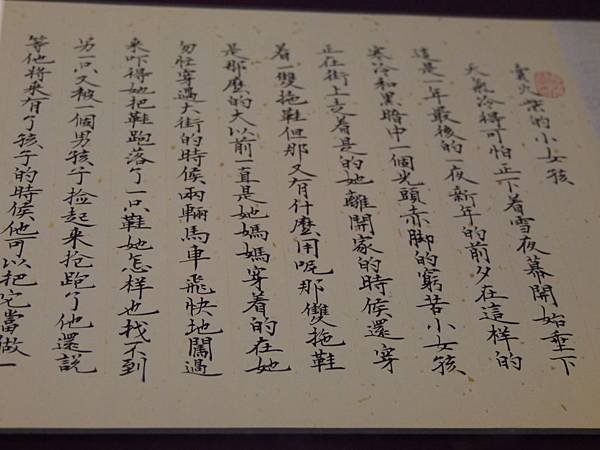 賣火柴的小女孩
天氣冷得可怕正下着雪夜幕開始垂下
這是一年最後的一夜新年的前夕在這樣的
寒冷和黑暗中一個光頭赤脚的窮苦小女孩
正在街上走着是的她離開家的時候還穿
着一雙拖鞋但那又有什麼用呢那雙拖鞋
是那麼的大以前一直是她媽媽穿着的在她
匆忙穿過大街的時候兩輛馬車飛快地闖過
来吓得她把鞋跑落了一只鞋她怎样也找不到
另一只又被一個男孩子捡起来抢跑了他還説
等他将来有了孩子的時候他可以把它當做一